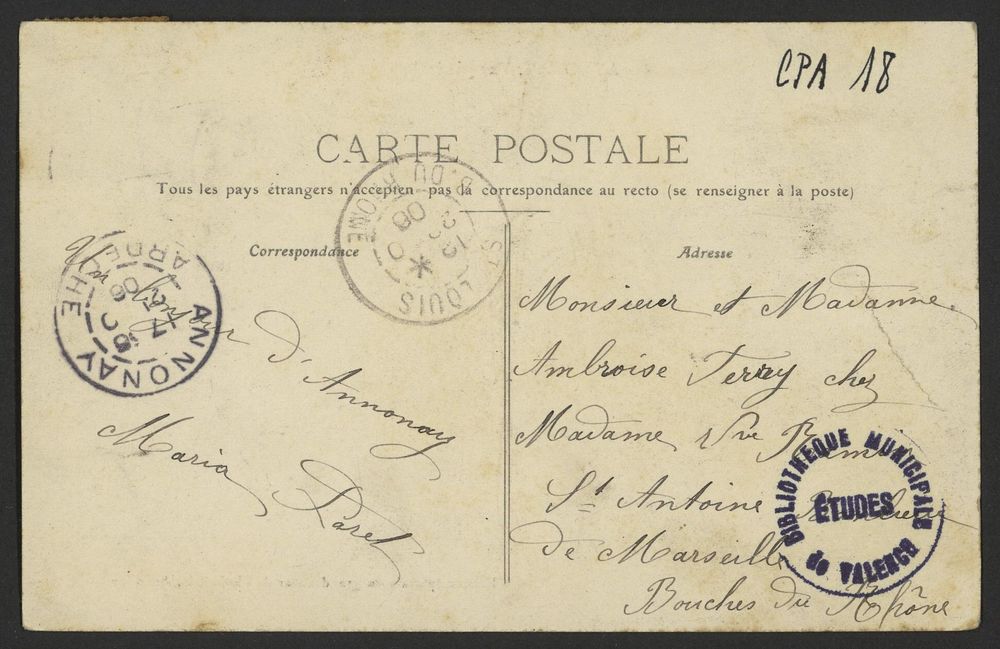 CPA 18
CARTE POSTALE
Tous les pays étrangers n'acceptent pas la correspondance au recto (se renseigner à la poste)
Correspondance
Un bonjour
d'Annonay
Maria Paret
Adresse
Monsieur et Madame
Ambroise Terrey chez
Madame Vve
St Antoine
de Marseille
Bouches du Rhône
ANNONAY
ARDECHE
ST LOUIS
B. DU RHONE
BIBLIOTHEQUE MUNICIPALE
ÉTUDES
de VALENCE